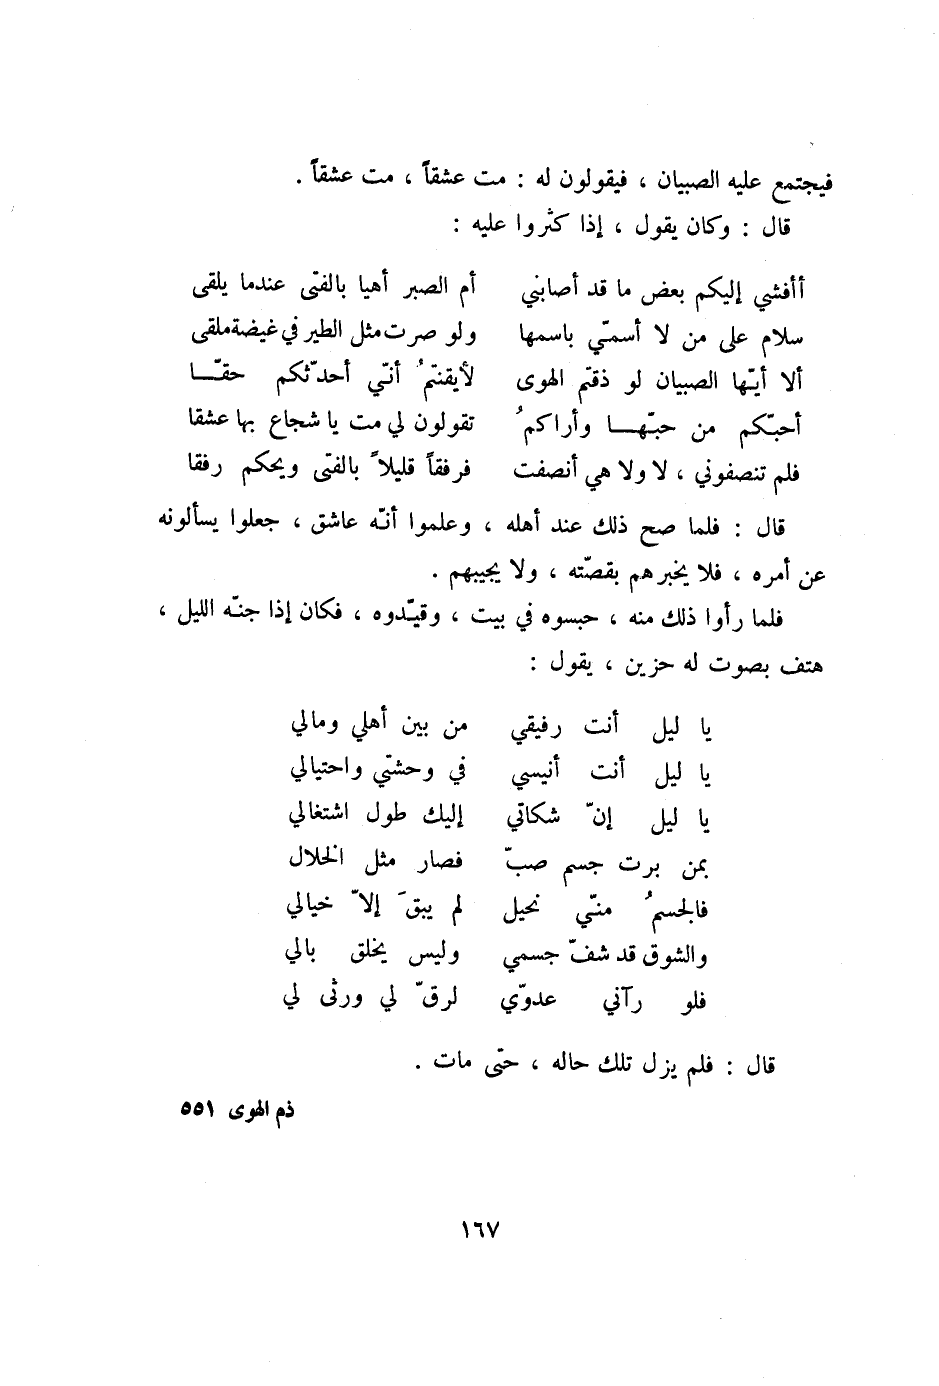 فيجتمع عليه الصبيان ، فيقولون له : مت عشقاً ، مت عشقاً .
قال : وكان يقول ، إذا كثروا عليه :
أأفشي إليكم بعض ما قد أصابني أم الصبر أهيا بالفتى عندما يلقى
سلام على من لا أسمّي باسمها ولو صرت مثل الطير في غيضة ملقى
ألا أيّها الصبيان لو ذقتم الهوى لأيقنتمُ أنّي أحدّثكم حقّا
أحبّكم من حبّها وأراكمُ تقولون لي مت يا شجاع بها عشقا
فلم تنصفوني ، لا ولا هي أنصفت فرفقاً قليلاً بالفتى ويحكم رفقا
قال : فلما صح ذلك عند أهله ، وعلموا أنّه عاشق ، جعلوا يسألونه
عن أمره ، فلا يخبرهم بقصّته ، ولا يجيبهم .
فلما رأوا ذلك منه ، حبسوه في بيت ، وقيّدوه ، فكان إذا جنّه الليل ،
هتف بصوت له حزين ، يقول :
يا ليل أنت رفيقي من بين أهلي ومالي
يا ليل أنت أنيسي في وحشتي واحتيالي
يا ليل إنّ شكاتي إليك طول اشتغالي
بمن برت جسم صبّ فصار مثل الخلال
فالجسمُ منّي نحيل لم يبقَ إلاّ خيالي
والشوق قد شفّ جسمي وليس يخلق بالي
فلو رآني عدوّي لرقّ لي ورثى لي
قال : فلم يزل تلك حاله ، حتّى مات .
ذم الهوى ٥٥١
١٦٧